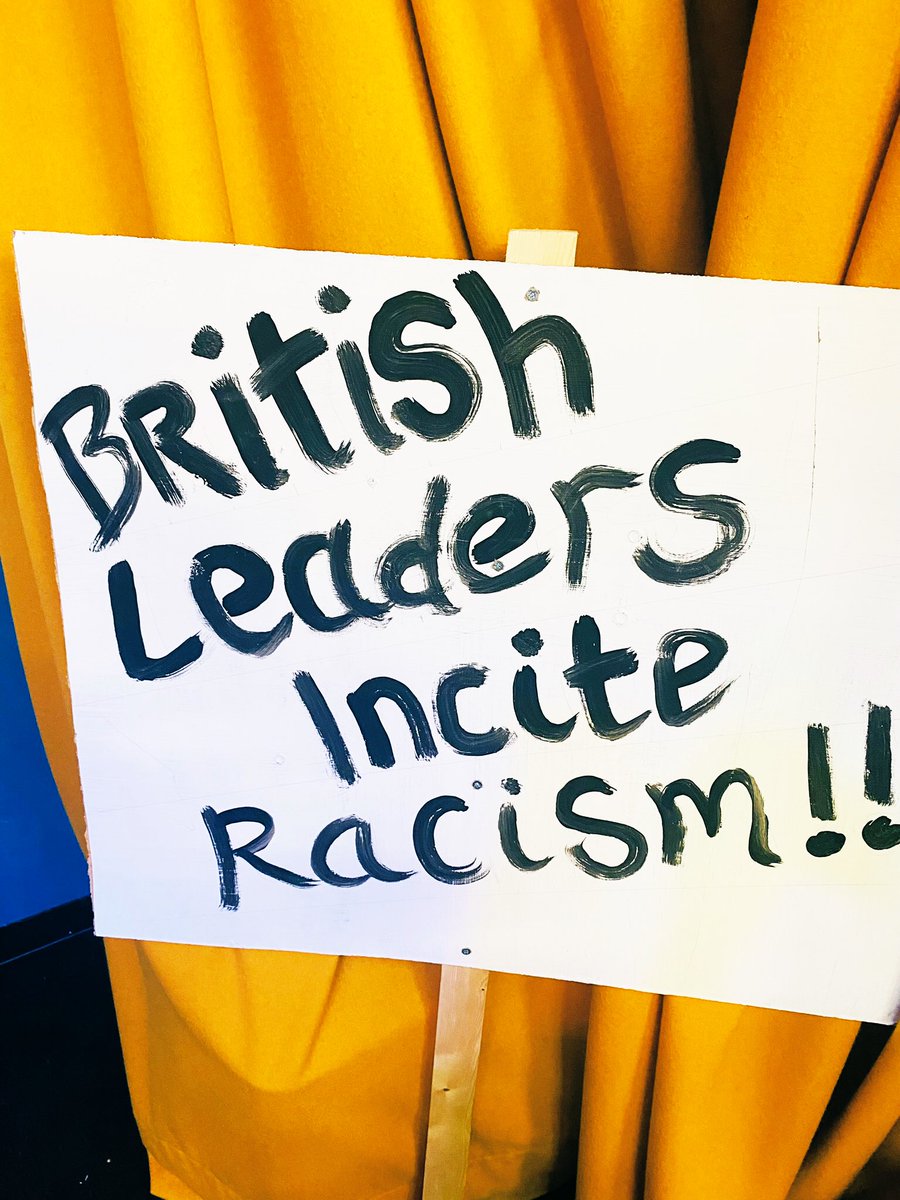 British
Leaders
Incite
Racism!!